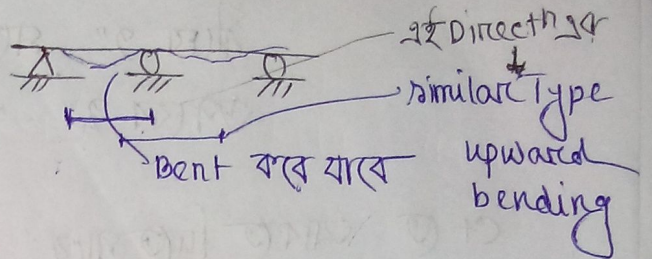 এই Direction এর
similar Type
upward
bending
Bent করে যাবে